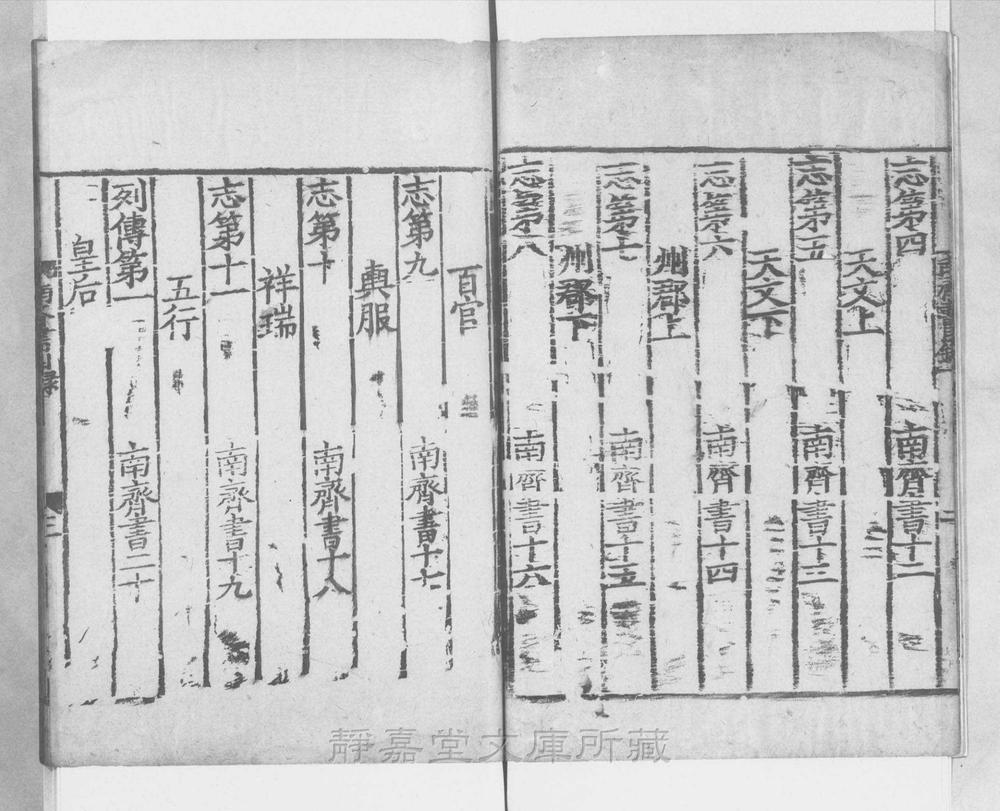 志第四 南齊書十二
天文上
志第五 南齊書十三
天文下
志第六 南齊書十四
州郡上
志第七 南齊書十五
州郡下
志第八 南齊書十六
百官
志第九 南齊書十七
輿服
志第十 南齊書十八
祥瑞
志第十一 南齊書十九
五行
列傳第一 南齊書二十
皇后
靜嘉堂文庫所藏